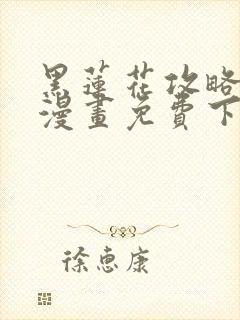 黑蓮花攻略
漫畫免費下
徐惠康